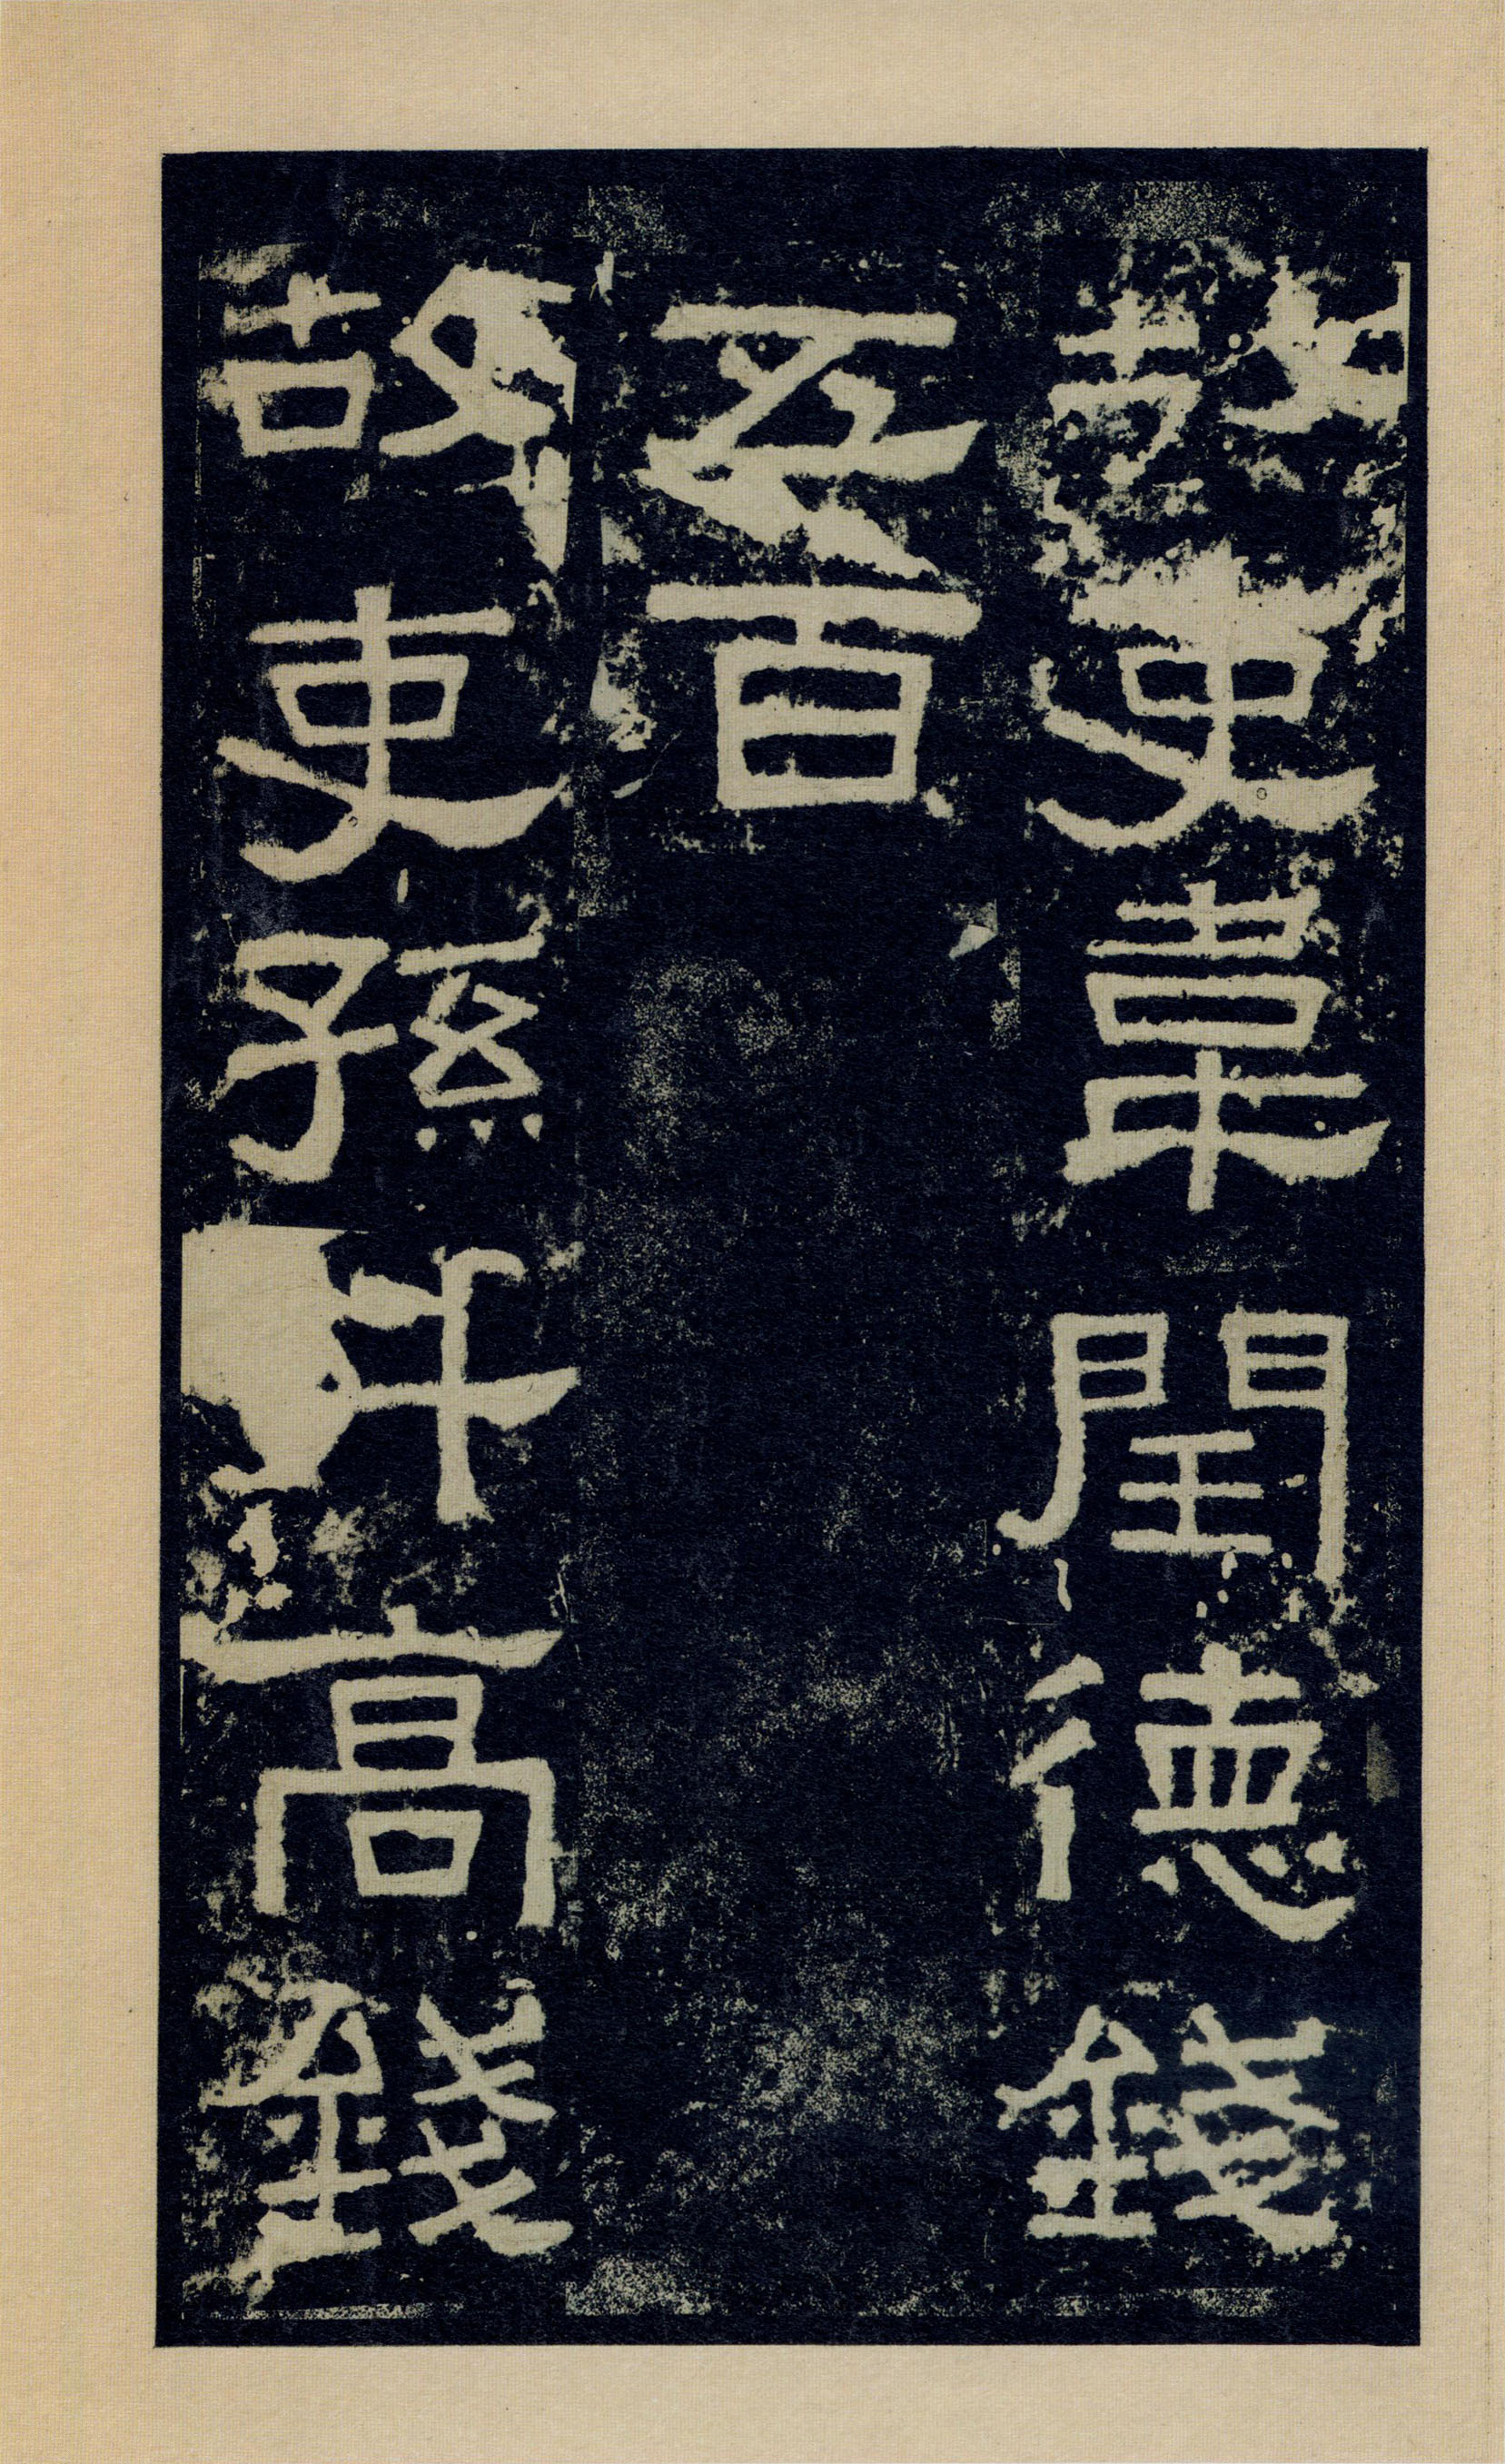 故吏韋閏德錢
五百
故吏孫升高錢